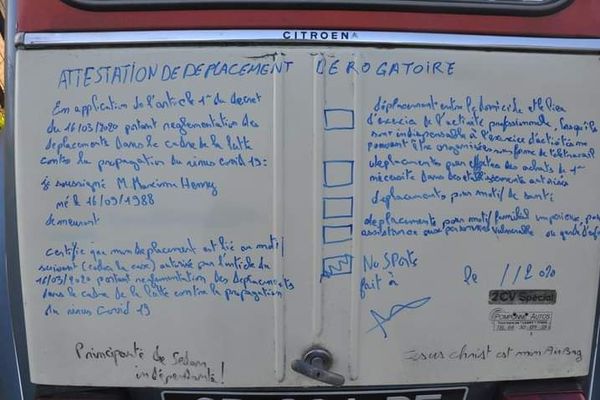 CITROËN
ATTESTATION DE DEPLACEMENT DEROGATOIRE
En application de l'article 1er du decret
du 16/03/2020 portant reglementation des
deplacements dans le cadre de la lutte
contre la propagation du virus covid 19:
je soussigné M. Maxime Henry
né le 16/09/1988
demeurant
certifie que mon deplacement est lié au motif
suivant (cochez la case) autorisé par l'article du
16/03/2020 portant reglementation des deplacements
dans le cadre de la lutte contre la propagation
du virus Covid 19
Principauté de Sedan
indépendante!
déplacement entre le domicile et le lieu
d'exercice de l'activité professionnelle, lorsqu'ils
sont indispensables à l'exercice d'activités ne
pouvant être organisées sous forme de télétravail
deplacements pour effectuer des achats de 1ere
necessité dans des etablissements autorisés
deplacements pour motif de santé
deplacements pour motif familial imperieux, pour
assistance aux personnes vulnerables ou garde d'enf
No SPORTS
fait à le / /2020
2CV Spécial
POMPONNE AUTOS
Jesus christ est mon AirBag